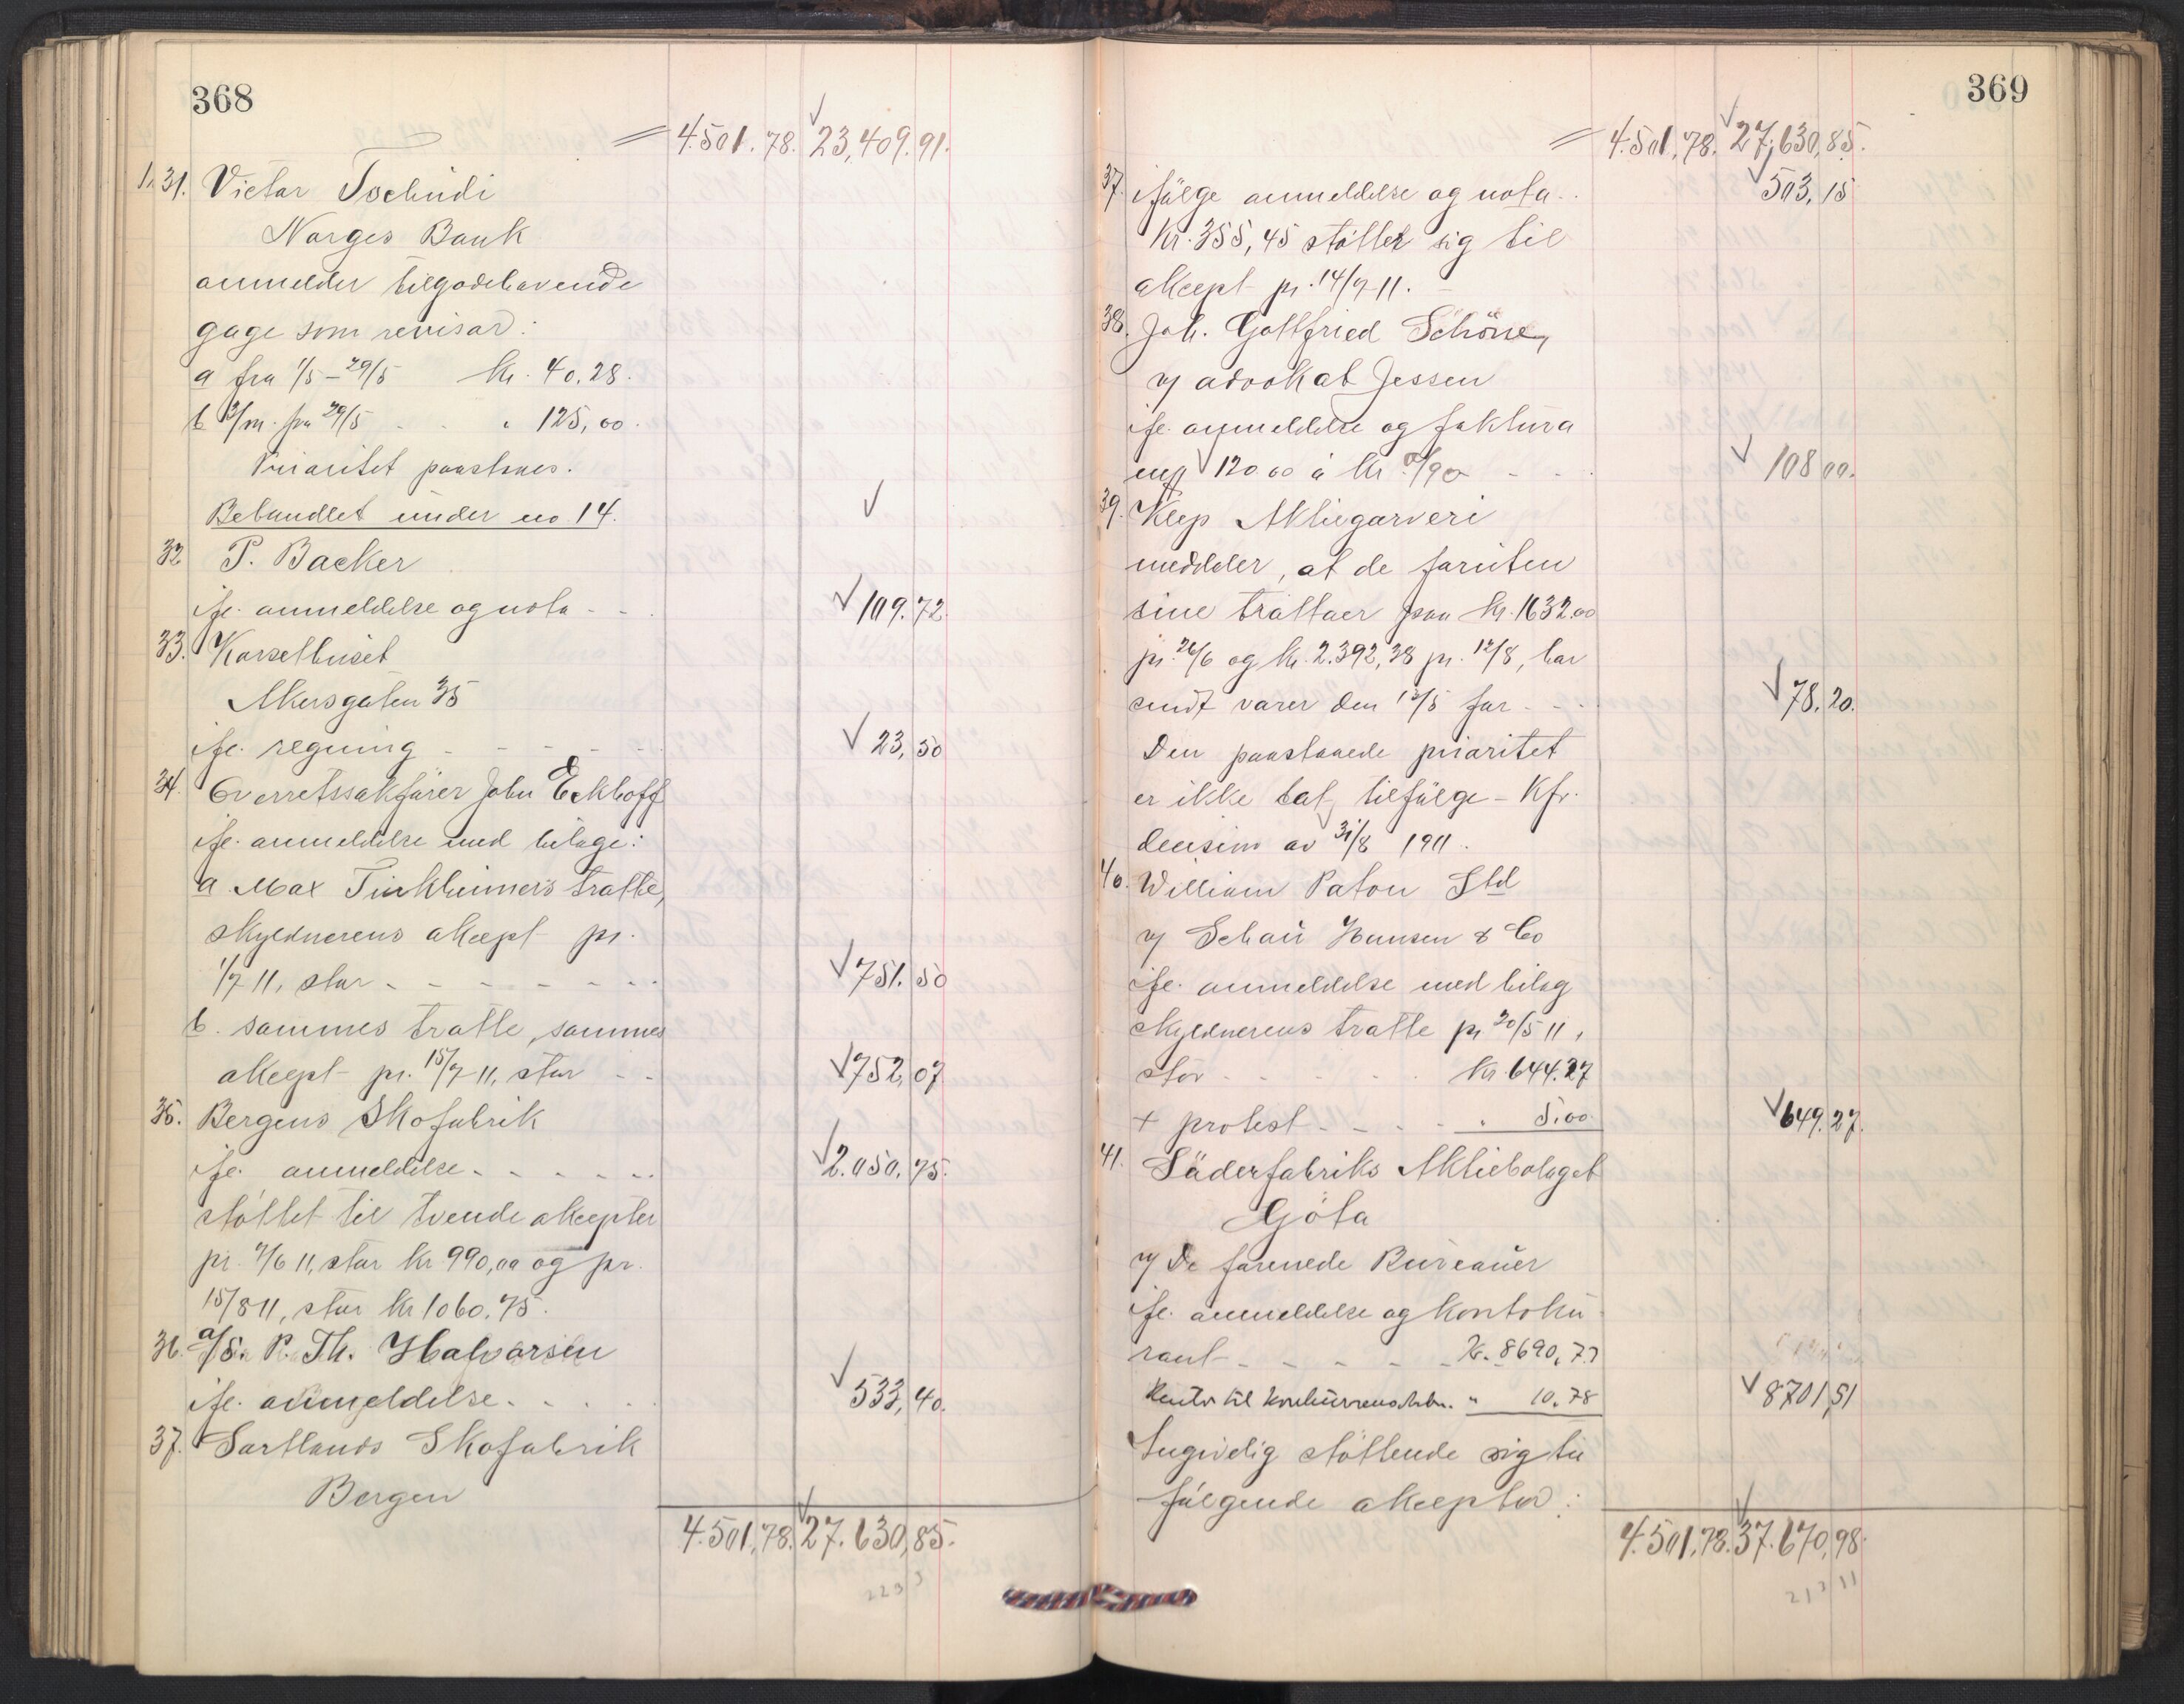 368
4.501.78. 23,409.91.
1. 31. Victor Tschudi
Norges Bank
anmelder tilgodehavende
gage som revisor:
a fra 1/5 – 29/5 kr. 40.28.
b 3/m. fra 29/5 - - " 125,00.
Prioritet paastaaes.
Behandlet under no 14.
32 P. Backer
ifø. anmeldelse og nota - - 109.72
33. Korsethuset
Akersgaten 35
ifø. regning - - - - - 23,50
34. Overretssakfører John Eckhoff
ifø. anmeldelse med bilage:
a. Max Türkheimer's tratte,
skyldnerens aksept pr.
1/7 11, stor - - - - - - 751.50
b. sammes tratte, sammes
aksept pr. 15/7 11, stor - - 752,07
35. Bergens Skofabrik
ifø. anmeldelse - - - - - - 2.050.75.
støttet til tvende aksepter
pr. 7/6 11, stor kr. 990,00 og pr.
15/8 11, stor kr 1060.75.
36. A/S. P. Th. Halvorsen
ifø. anmeldelse. - - - 533,40.
37. Sartlands Skofabrik
Bergen
4.501,78. 27.630,85.
2233
369
4.501,78. 27,630,85.
37. ifølge anmeldelse og nota. 503,15
Kr. 355,45 støttet sig til
aksept pr. 14/7 11.
38. Joh. Gottfried Schöne,
v/ advokat Jessen
ifø. anmeldelse og faktura
120.00 à kr 0/90 - - 108 00.
39. Klep Aktiegarveri
meddeler, at de foruten
sine tratter paa kr. 1632.00
pr. 26/6 og kr. 2.392,38 pr. 12/8, har
sendt varer den 12/5 for - - 78.20.
Den paastaaede prioritet
er ikke tat tilfølge – Kfr.
decision av 31/8 1911.
40. William Paton Ltd
v/ Schau Hansen & Co
ifø. anmeldelse med bilag
skyldnerens tratte pr 20/5 11,
stor - - - - - kr. 644.27
+ protest - - - - " 5.00 649.27.
41. Läderfabriks Aktiebolaget
Göta
v/ De forenede Bureauer
ifø. anmeldelse og kontoku
rant - - - - - kr. 8690,73
Renter til konkursens " 10.78 8701,51
støttende sig til
følgende aksepter:
4.501,78. 37.670,98.
21311